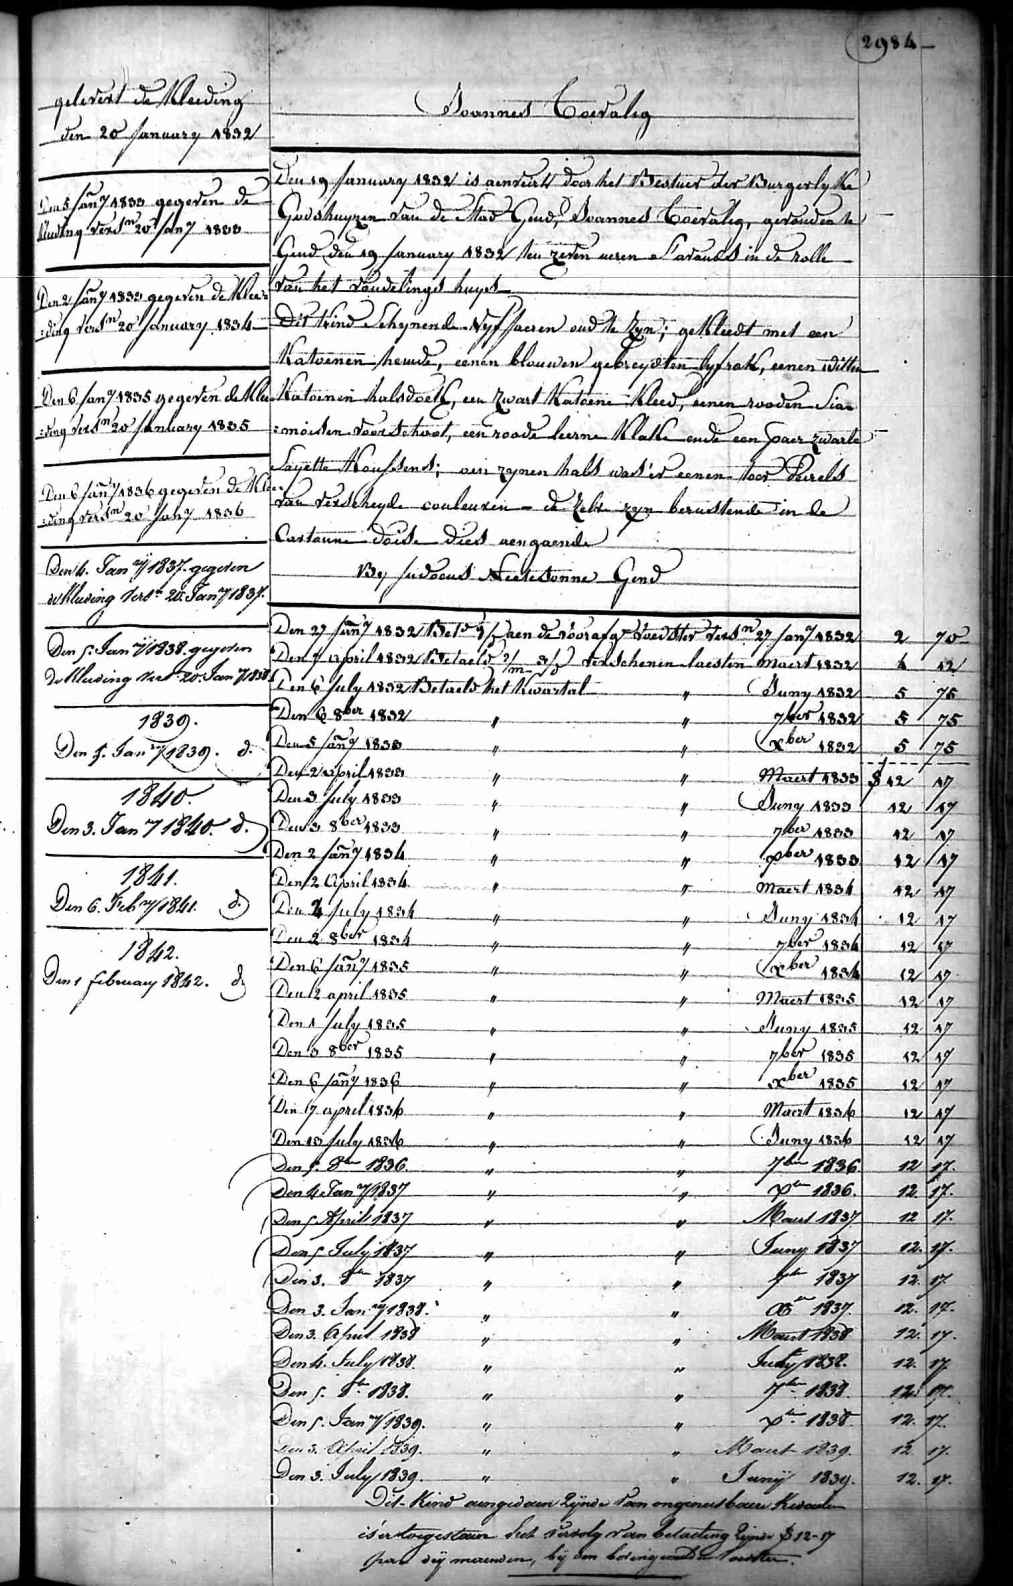 2984
gelevert de Kleeding
den 20 January 1832
Den 5 Janry 1833 gegeven de
Kleeding versn 20 Jany 1833
Den 2 Jany 1833 gegeven de Klee=
=ding versn 20 January 1834
Den 6 Jany 1835 gegeven de Klee
=ding versn 20 January 1835
Den 6 Jany 1836 gegeven de Klee
=ding versn 20 Jany 1836
Den 4. Janry 1837. gegeven
de Kleeding versn 20. Jany 1837.
Den 5. Janry 1838. gegeven
de Kleeding vers 20. Jany 1838
1839.
Den 5. Jany 1839. d.
1840.
Den 3. Jany 1840. d.
1841.
Den 6. Febry 1841. d.
1842.
Den 1 february 1842. d
Joannes Toevalig
Den 19 January 1832 is aenveert door het Bestuer der Burgerlyke
Godshuyzen van de Stad Gend, Joannes Toevalig, gevonden te
Gend den 19 January 1832 ten zeven ueren s'avonds in de rolle
van het vondelings huys
Dit Kind Schynende Vyf Jaeren oud te Zyn; gekleedt met een
Katoenen hemde, eenen blauwen gebreydten lyfrok, eenen witten
Katoenen halsdoek, een zwart Katoene Kleed, eenen rooden Sia=
=moisen voorschoot, een roode leerne Klakke ende een paer zwarte
Sayette Koussens; aen zynen hals was'er eenen toer Peirels
van verscheyde couleuren – de Zelve zyn berustende in de
Cartonne doise dies aengaende
By Judocus Gend
Den 27 Jany 1832 Betd aen de voorsgn voedster versn 27 Jany 1832 2 70
Den 7 April 1832 Betaeld 2/m 3/d verschenen laesten Maert 1832 4 12
Den 6 July 1832 Betaeld het Kwartal " Juny 1832 5 75
Den 6 8ber 1832 " " 7ber 1832 5 75
Den 5 Jany 1833 " " xber 1832 5 75
Den 2 April 1833 " " Maert 1833 $ 12 17
Den 3 July 1833 " " Juny 1833 12 17
Den 3 8ber 1833 " " 7ber 1833 12 17
Den 2 Jany 1834 " " xber 1833 12 17
Den 2 April 1834 " " Maert 1834 12 17
Den 4 July 1834 " " Juny 1834 12 17
Den 2 8ber 1834 " " 7ber 1834 12 17
Den 6 Jany 1835 " " xber 1834 12 17
Den 2 april 1835 " " Maert 1835 12 17
Den 1 July 1835 " " Juny 1835 12 17
Den 3 8ber 1835 " " 7ber 1835 12 17
Den 6 Jany 1836 " " xber 1835 12 17
Den 7 april 1836 " " Maert 1836 12 17
Den 13 July 1836 " " Juny 1836 12 17
Den 5 8ber 1836. " " 7ber 1836 12 17.
Den 4 Jany 1837 " " xber 1836. 12. 17.
Den 5 April 1837 " " Maert 1837 12 17.
Den 5 July 1837 " " Juny 1837 12. 17.
Den 3. 8ber 1837 " " 7ber 1837 12. 17.
Den 3. Janry 1838. " " Xber 1837. 12. 17.
Den 3. April 1838 " " Maert 1838 12. 17.
Den 4. July 1838. " " July 1838. 12. 17
Den 5. 8br 1838. " " 7ber 1838 12. 17.
Den 5. Jany 1839. " " xber 1838 12. 17.
Den 3. April 1839. " " Maert 1839. 12 17.
Den 3. July 1839. " " Junij 1839. 12. 17.
Dit Kind aengedaen Zynde van ongeneesbaere Kwaelen
is'er toegestaen het vervolg van betaeling Zynde $ 12-17
par dry maenden, by den voedster.